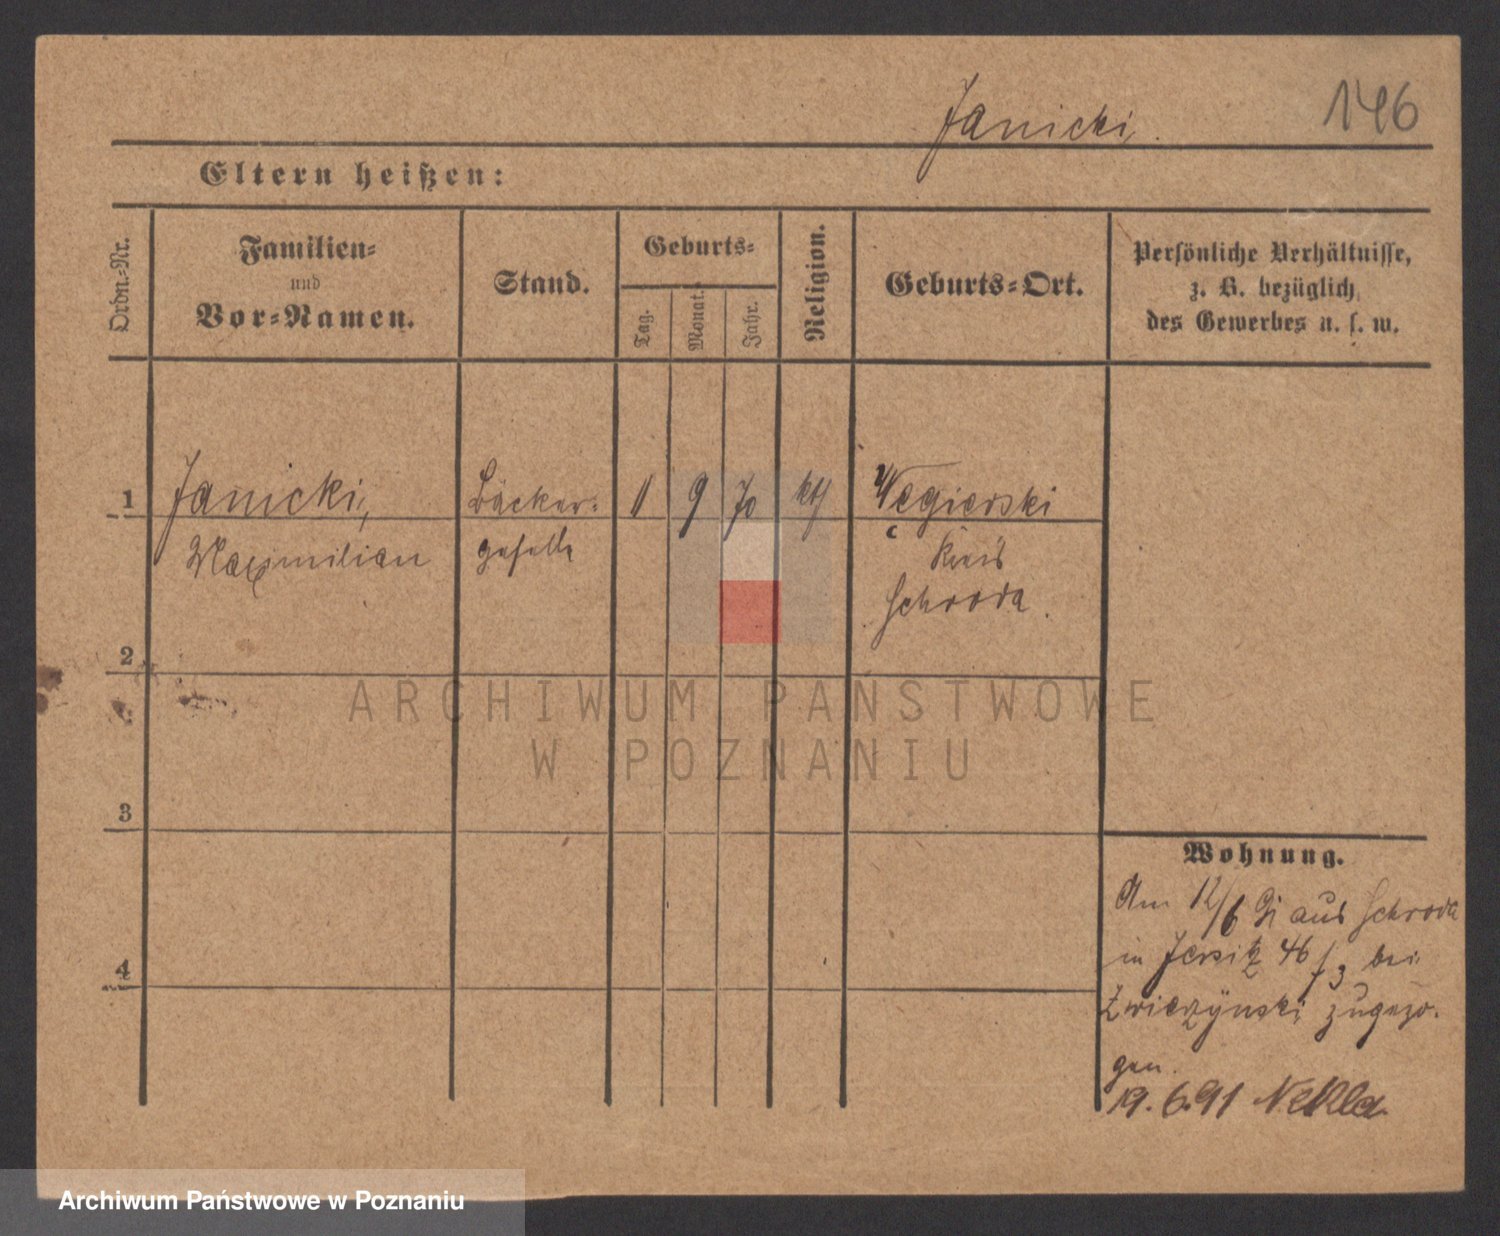 146
Janicki.
Eltern heißen:
Ordn.-Nr.
Familien-
und
Vor-Namen.
Stand.
Geburts-
Tag.
Monat.
Jahr.
Religion.
Geburts-Ort.
Persönliche Verhältnisse,
z. B. bezüglich
des Gewerbes u. s. w.
1 Janicki, Bäcker- 11 9 70 kth Węgierski
Maximilian geselle Kreis
Schroda.
2
3
4
Wohnung.
Am 12/6 91 aus Schroda
in Jersitz 46 f 3 bei
zugezo-
gen.
19.6.91 Nekla.
ARCHIWUM PANSTWOWE
W POZNANIU
Archiwum Państwowe w Poznaniu